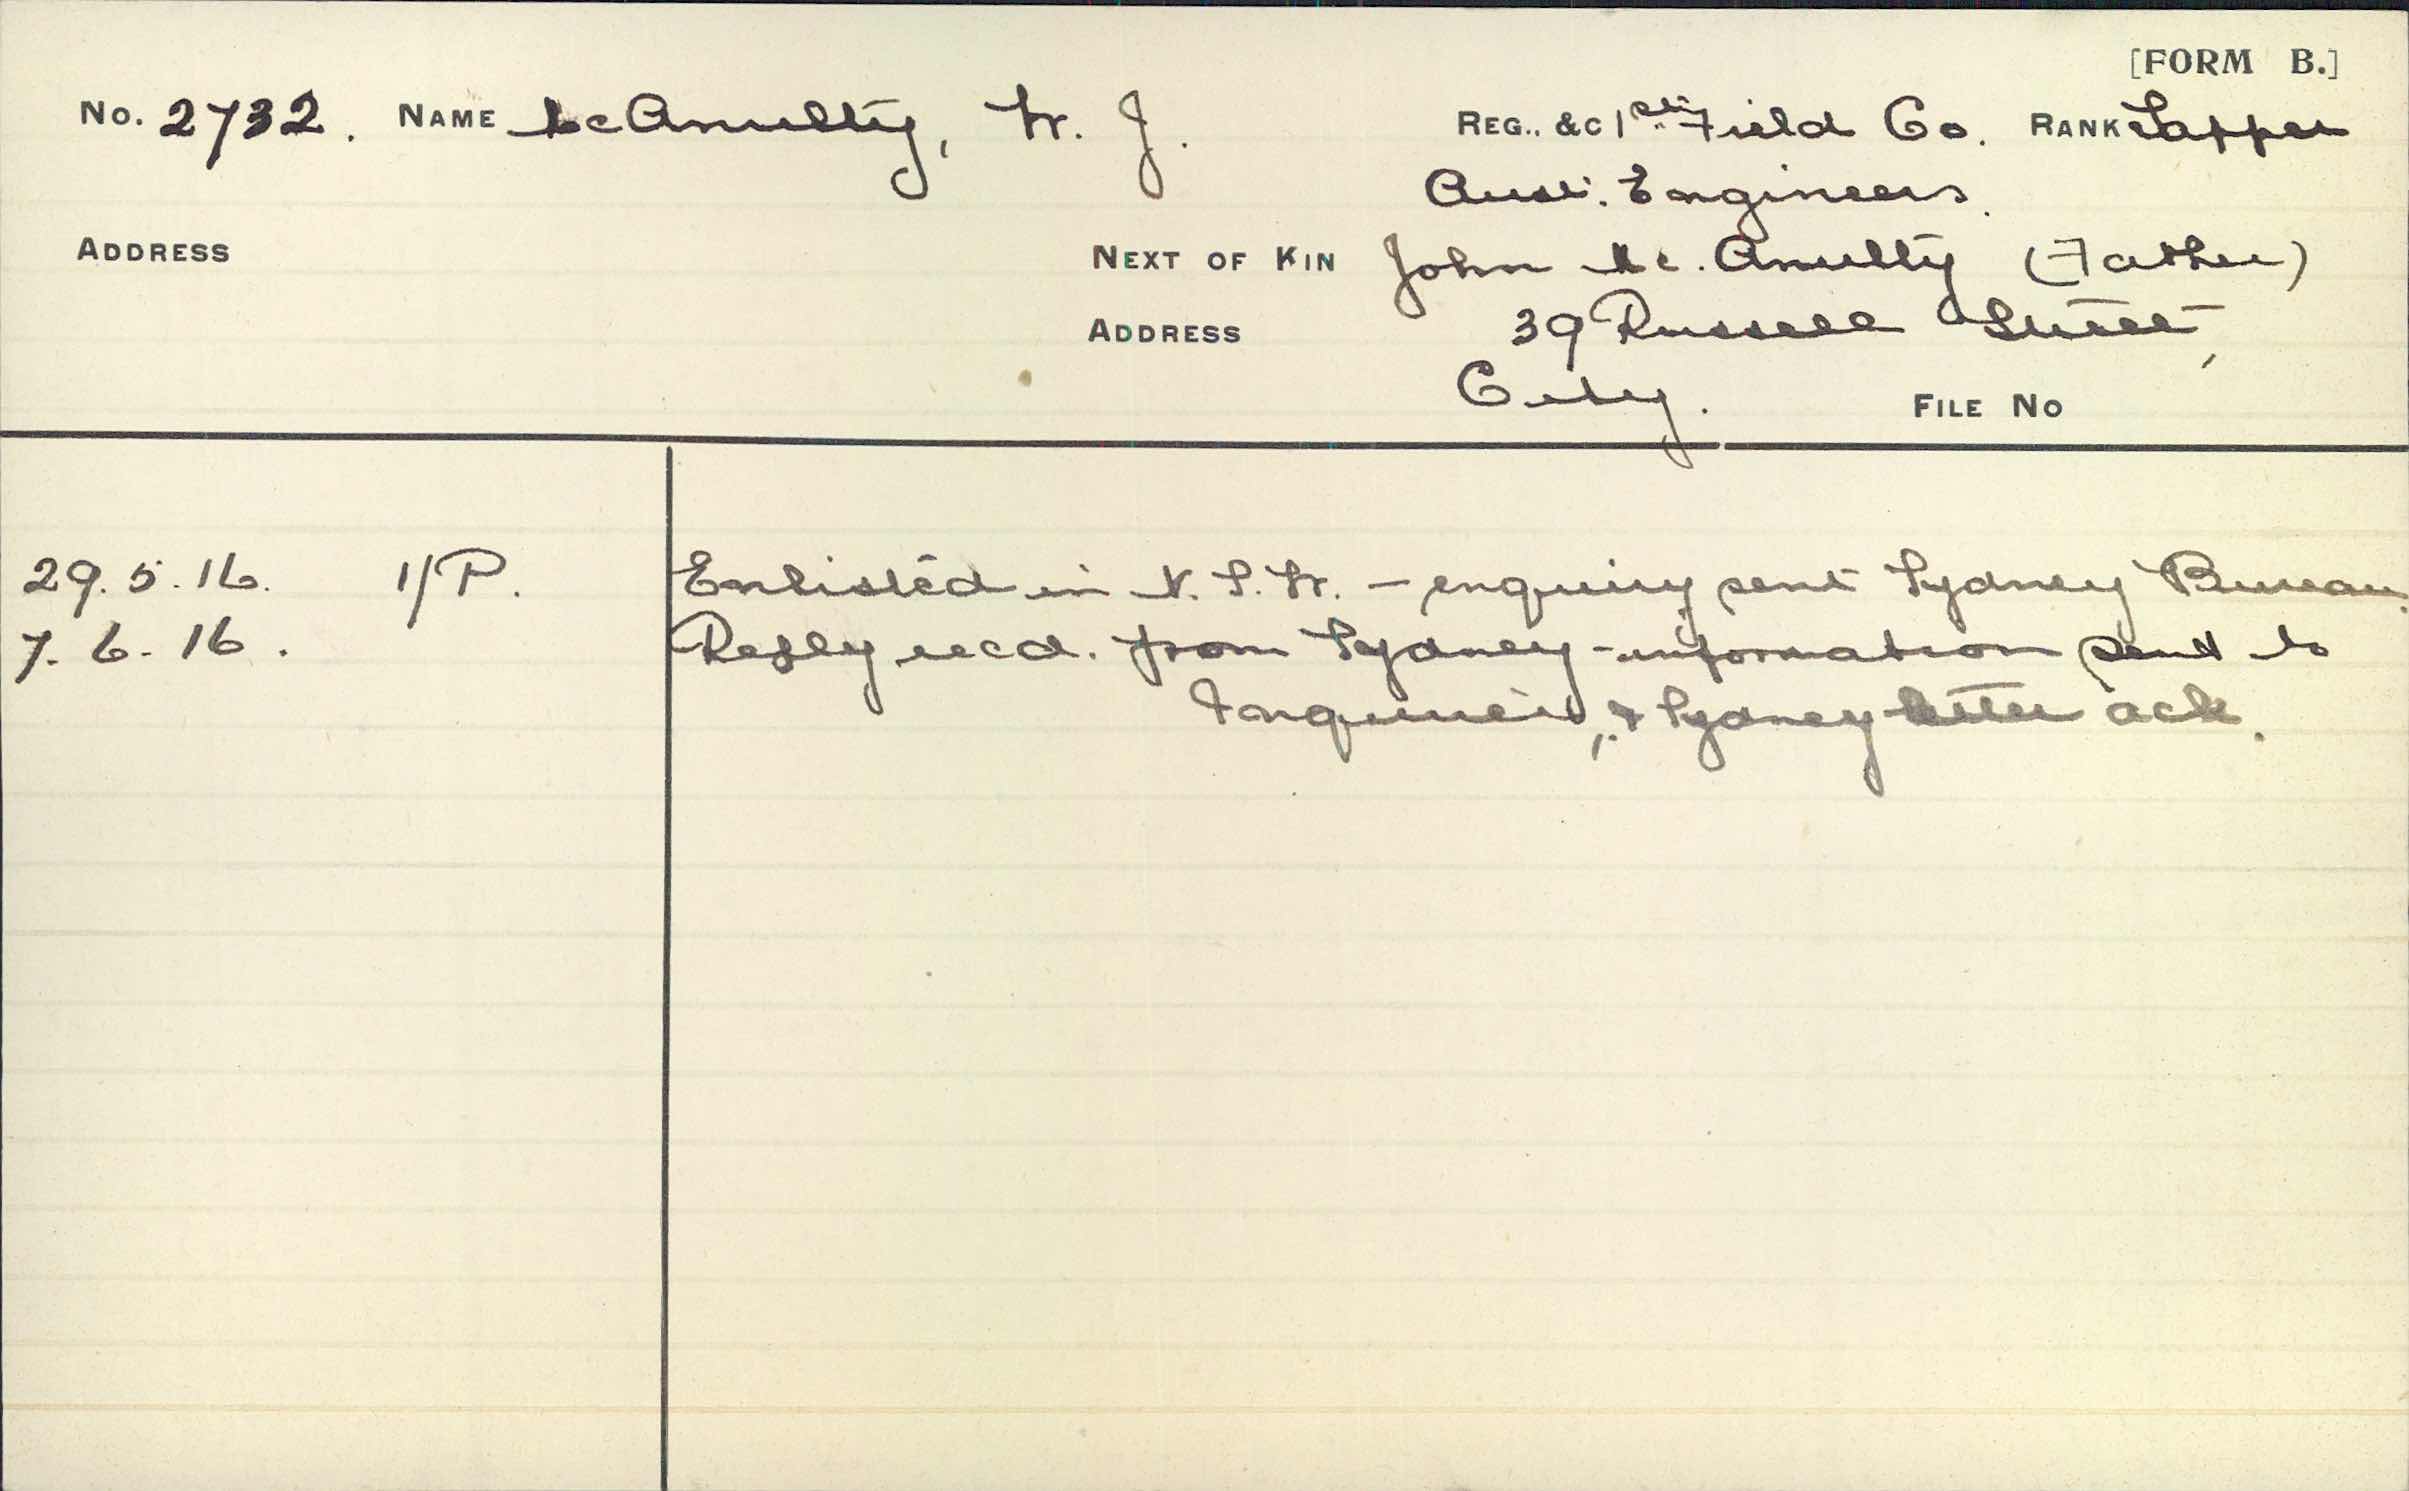 [FORM B.]
No. 2732. NAME McAnulty, W. J. REG., &C 1st Field Co. RANK Sapper
Aust. Engineers.
ADDRESS NEXT OF KIN John Mc. Anulty (Father)
ADDRESS 39 Russell Street,
City. FILE No
29.5.16. 1/P. Enlisted in N.S.W. – enquiry sent Sydney Bureau.
7.6.16. Reply recd. from Sydney - information sent to
Inquirer, & Sydney letter ack.